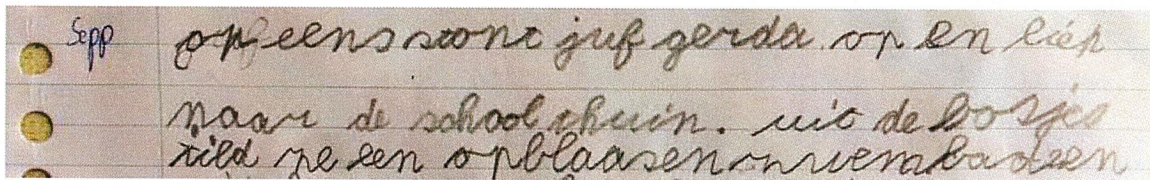 Sepp opeens stont juf gerda op en liep
naar de schoolthuin. uit de bosjes
tild ze een opblaasen